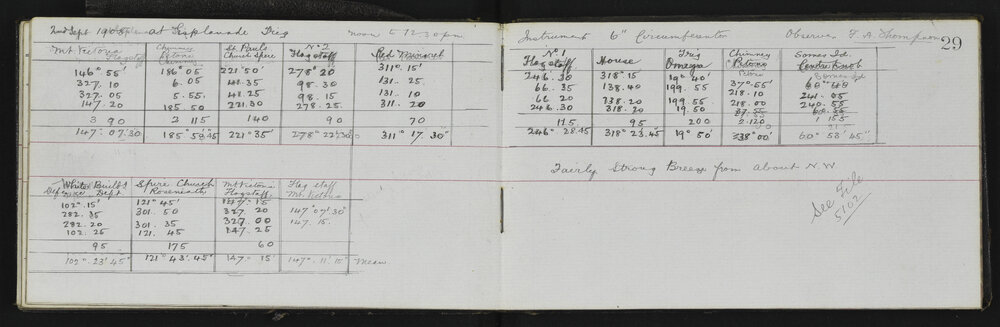 2nd Sept 1903 at Esplanade Trig noon to 12.30 pm
Mt Victoria Flagstaff | Chimney Petone | St. Pauls Church Spire | No 2 Flagstaff | Red Minaret
146° 55' | 186° 05 | 221° 50' | 278° 20 | 311° 15'
327. 10 | 6. 05 | 41. 35 | 98. 30 | 131. 25
327. 05 | 5. 55 | 41. 25 | 98. 15 | 131. 10
147. 20 | 185. 50 | 221. 30 | 278. 25 | 311. 20
3 90 | 2 115 | 140 | 90 | 70
147° 07' 30 | 185° 58' 45 | 221° 35' | 278° 22' 30 | 311° 17' 30"
White Build'g Defence Dept | Spire Church Roseneath | Mt Victoria Flagstaff | Flag staff Mt. Victoria
102° 15' | 121° 45' | 147° 15
282. 35 | 301. 50 | 327. 20 | 147° 07' 30"
282. 20 | 301. 35 | 327. 00 | 147. 15
102. 25 | 121. 45 | 147. 25
95 | 175 | 60
102° 23' 45" | 121° 43' 45" | 147° 15' | 147° 11' 15" Mean
Instrument 6" Circumferentor Observer F. A. Thompson
29
No 1 Flagstaff | House | Trig Omega | Chimney Petone | Somes Id. Centre Knob
246. 30 | 318° 15 | 19° 40'
66. 35 | 138. 40 | 199. 55 | 218. 10 | 241. 05
66 20 | 138. 20 | 199. 55 | 218. 00 | 240. 55
246. 30 | 318. 20 | 19. 50
115 | 95 | 200 | 2. 120 | 1 155
246° 28' 45 | 318° 23' 45 | 19° 50' | 38° 00' | 60° 53' 45"
Fairly Strong Breeze from about N.W
See File
5102